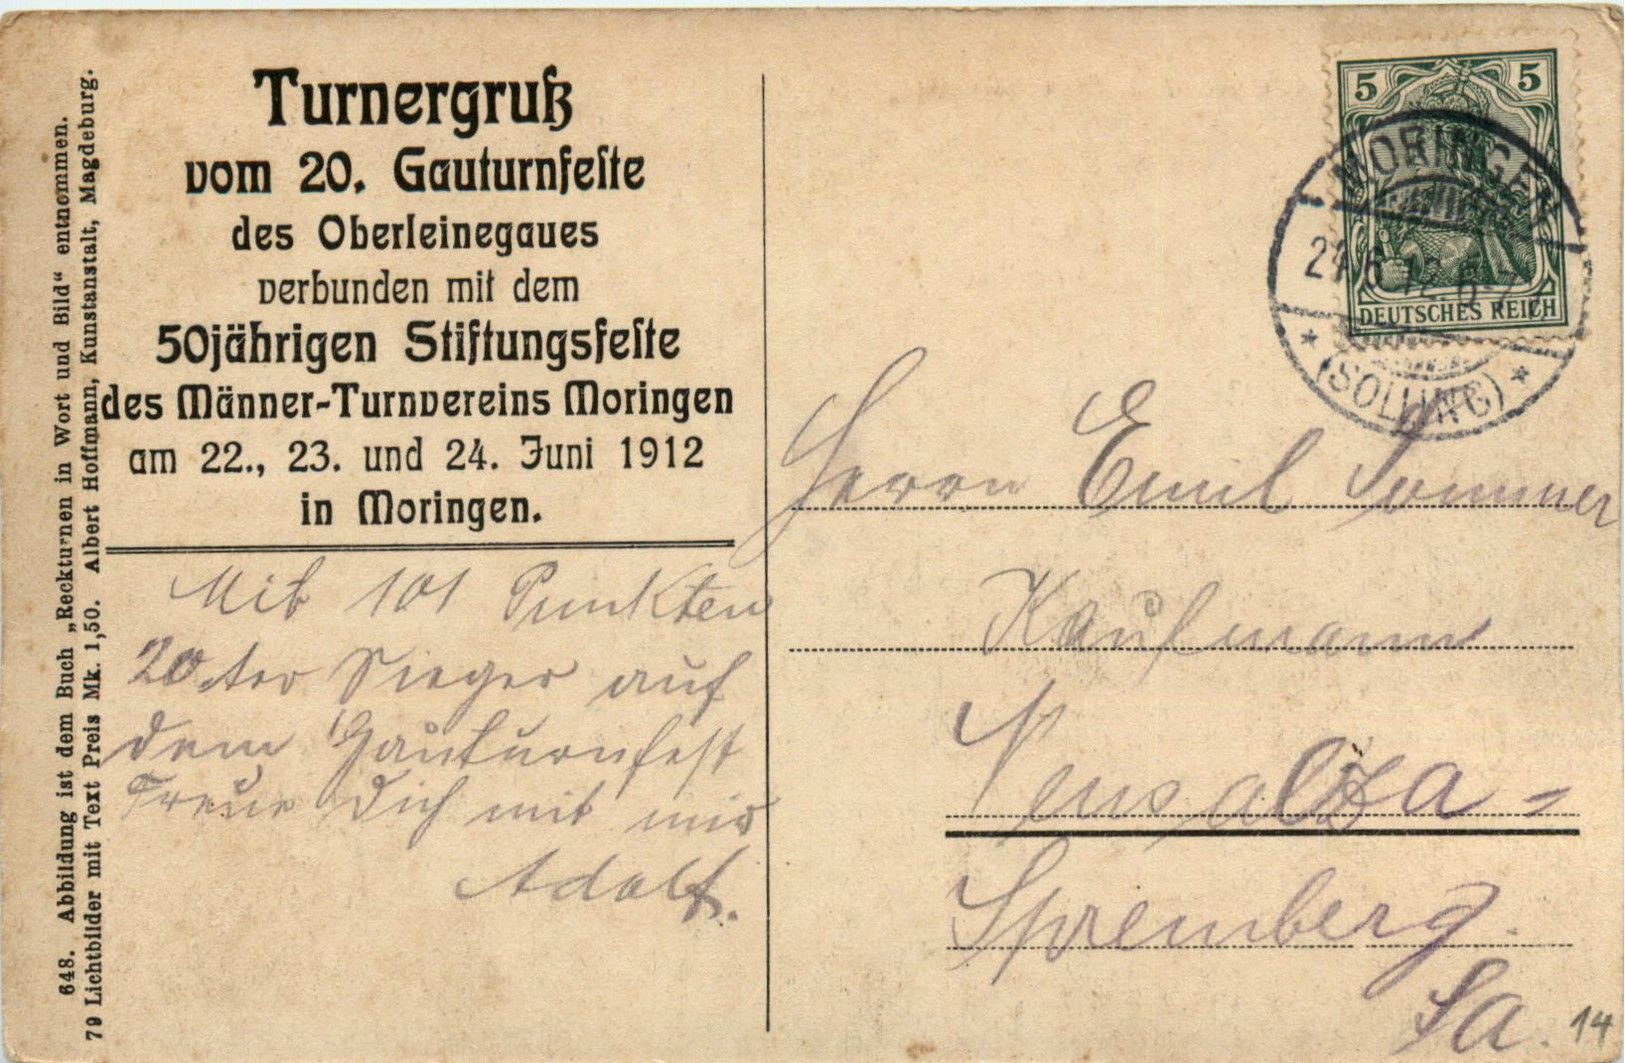 Turnergruß
vom 20. Gauturnfeſte
des Oberleinegaues
verbunden mit dem
50jährigen Stiftungsfeſte
des Männer-Turnvereins Moringen
am 22., 23. und 24. Juni 1912
in Moringen.
Mit 101 Punkten
20.ter Sieger auf
dem Gauturnfest
Freue Dich mit mir
Adolf.
648. Abbildung ist dem Buch „Reckturnen in Wort und Bild“ entnommen.
79 Lichtbilder mit Text Preis Mk. 1,50. Albert Hoffmann, Kunstanstalt, Magdeburg.
5 5
DEUTSCHES REICH
MORINGEN
(SOLLING)
Herrn Emil Sommer
Kaufmann
Neusalza-
Spremberg.
Sa.
14